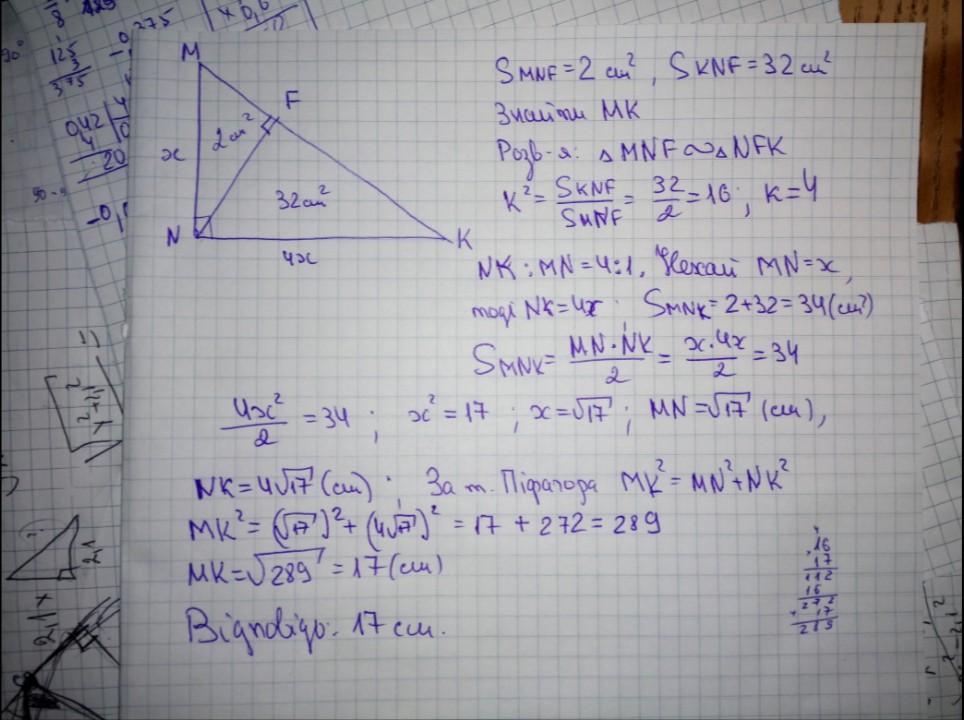 M
F
2 см²
x
32 см²
N
K
4x
S MNF = 2 см², S KNF = 32 см²
Знайти MK
Розв-я: △ MNF ∾ △ NFK
K² = S KNF / S MNF = 32 / 2 = 16; K = 4
NK : MN = 4:1. Нехай MN = x,
тоді NK = 4x; S MNK = 2 + 32 = 34 (см²)
S MNK = MN · NK / 2 = x · 4x / 2 = 34
4x² / 2 = 34; x² = 17; x = √17; MN = √17 (см),
NK = 4√17 (см); За т. Піфагора MK² = MN² + NK²
MK² = (√17)² + (4√17)² = 17 + 272 = 289
MK = √289 = 17 (см)
Відповідь: 17 см.
16
17
112
16
272
+ 17
289
125
3
375
0,42
4
20
2,1